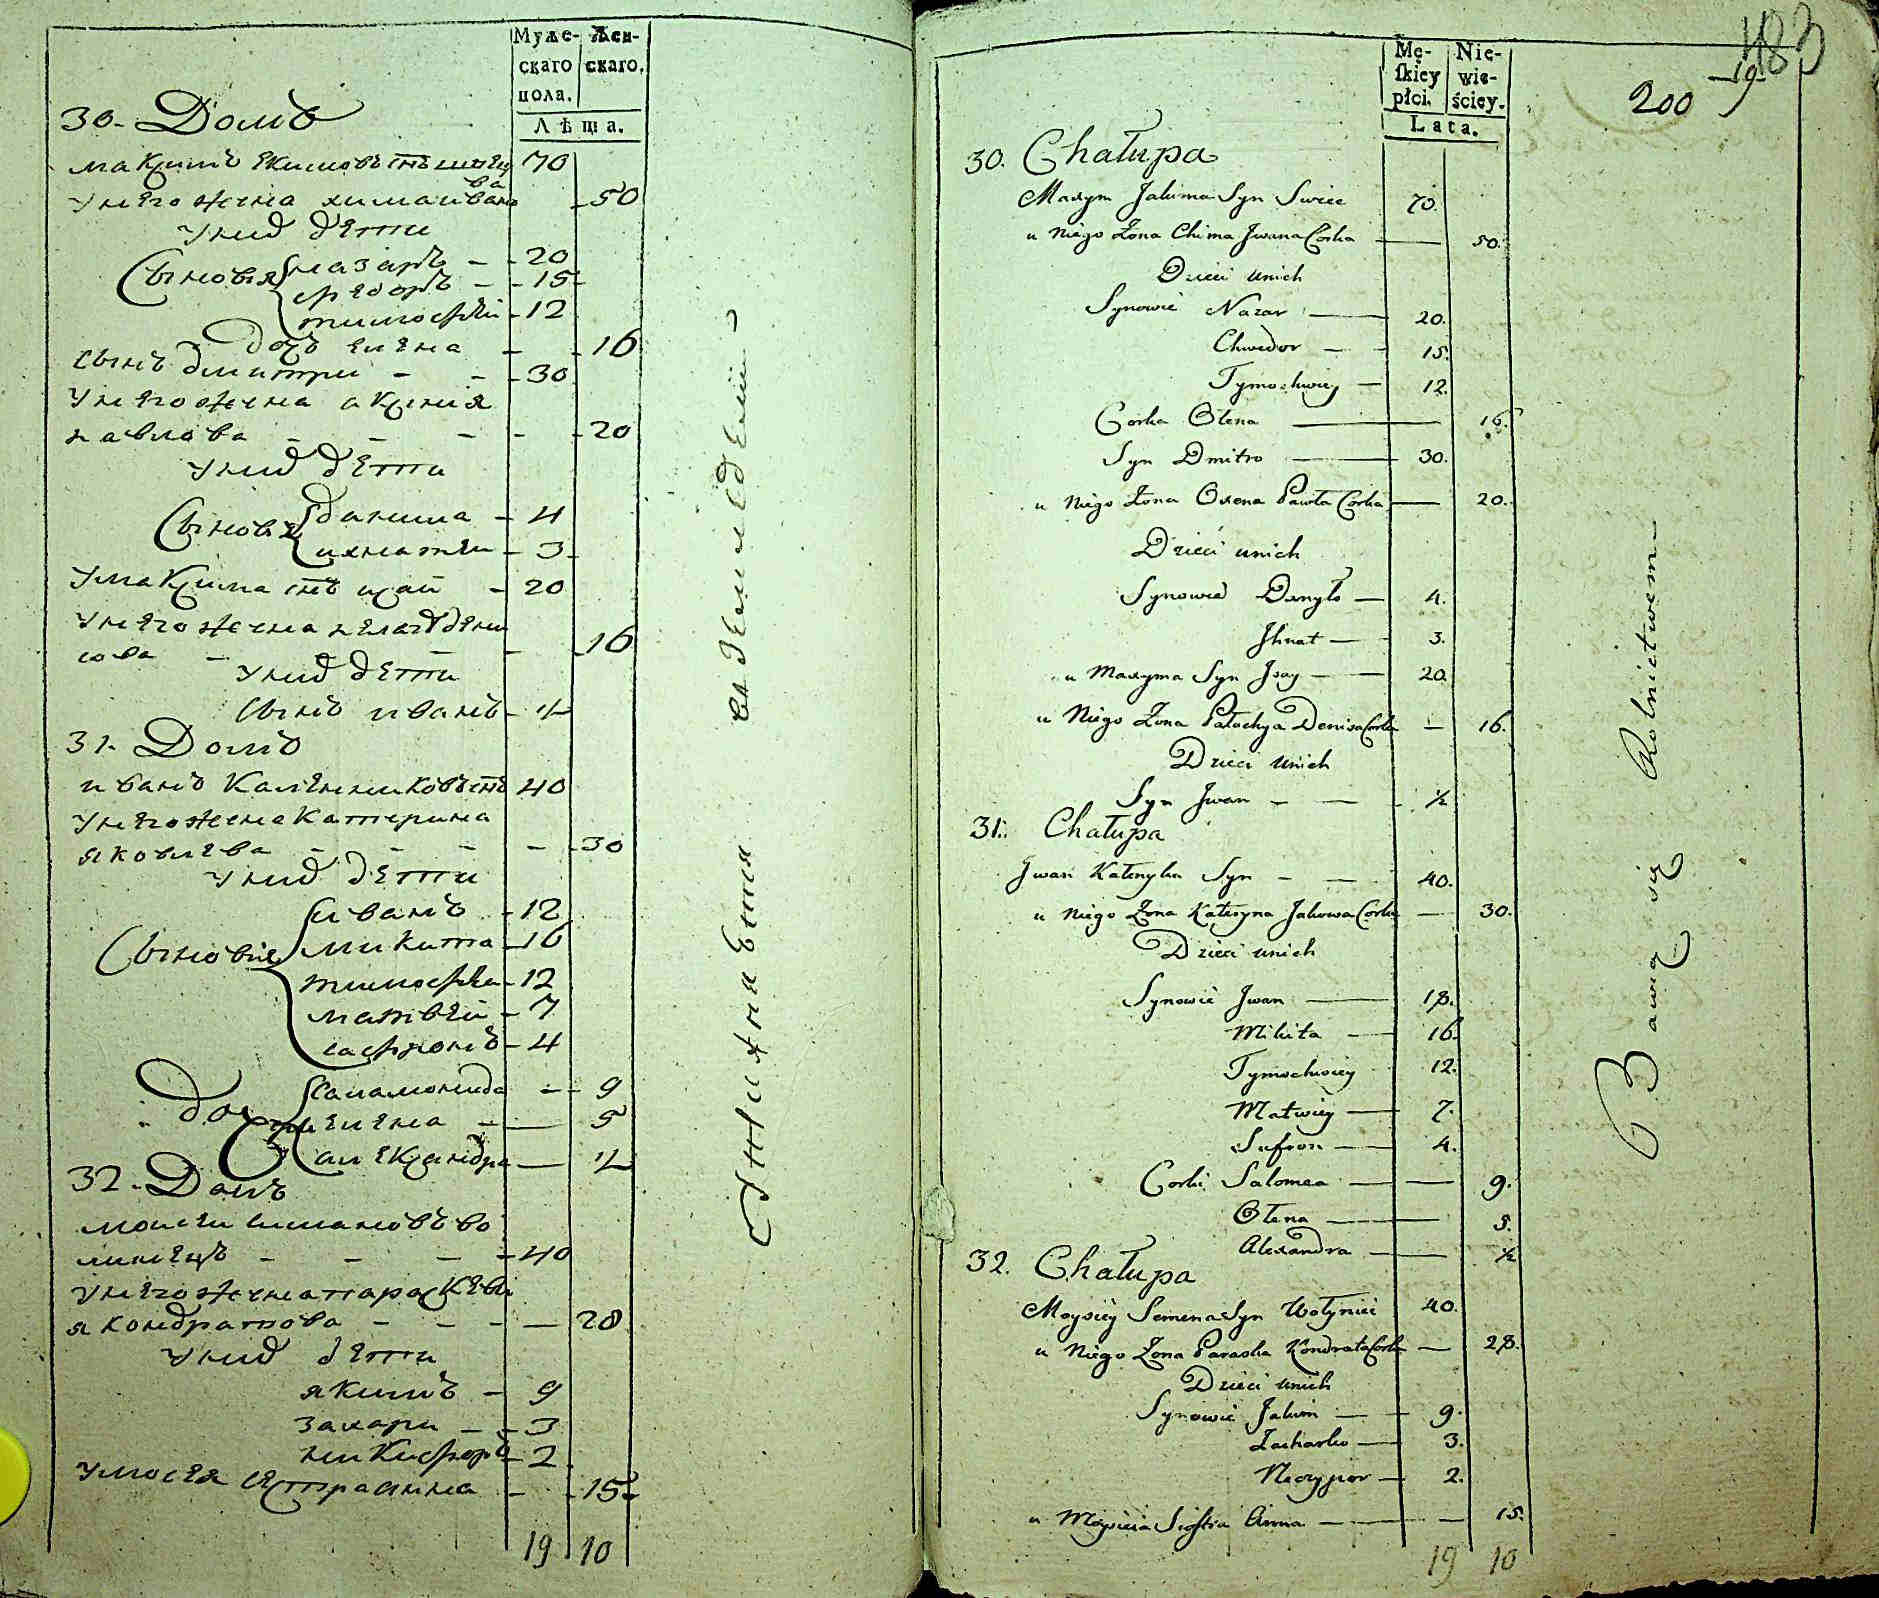 Муже-
скаго
пола.
Жен-
скаго.
Лѣта.
30. Домъ
Максимъ Екимовъ сынъ швецъ 70
у него жена химаива иванова 50
у них дети
Сыновья назаръ - 20
ѳедоръ - 15
тимофей - 12
дочь елена - 16
сынъ дмитри - 30
у него жена аксиния
павлова - 20
у них дети
Сыновья данила - 4
ихнатеи - 3
у максима снъ исай - 20
у него жена пелагея дени
сова - 16
у них дети
Сынъ иванъ - ½
31. Домъ
иванъ Каленниковъ снъ 40
у него жена катерина
яковлева - 30
у них дети
Сыновья иванъ - 12
микита - 16
тимофеи - 12
матвеи - 7
сафронъ - 4
дочери саламонида - 9
елена - 5
александра - ½
32. Домъ
моисеи симановъ во
линецъ - 40
у него жена параскеви
я кондратова - 28
у них дети
якимъ - 9
захари - 3
никифоръ - 2
у мосея сестра анна - 15
19 10
въ земледелии
483
19.
200
Mę-
skiey
płci.
Nie-
wie-
ściey.
Lata.
30. Chałupa
Maxym Jakima Syn Swiec 70.
u Niego Żona Chima Jwana Corka 50.
Dzieci unich
Synowie Nazar 20.
Chwedor 15.
Tymochwiey 12.
Corka Ołena 16.
Syn Dmitro 30.
u Niego Żona Oxena Pawła Corka 20.
Dzieci unich
Synowie Danyło 4.
Jhnat 3.
u Maxyma Syn Jsay 20.
u Niego Żona Pałachya Denisa Corka 16.
Dzieci unich
Syn Jwan ½
31. Chałupa
Jwan Kałenyka Syn 40.
u Niego Żona Kateryna Jakowa Corka 30.
Dzieci unich
Synowie Jwan 18.
Mikita 16.
Tymochwiey 12.
Matwiey 7.
Sufron 4.
Corki Salomea 9.
Ołena 5.
Alexandra ½
32. Chałupa
Moysiey Semena Syn Wołyniec 40.
u Niego Żona Paraska Kondrata Corka 28.
Dzieci unich
Synowie Jakim 9.
Zacharko 3.
Neczypor 2.
u Moysieia Siostra Anna 15.
19 10
Bawią się Rolnictwem